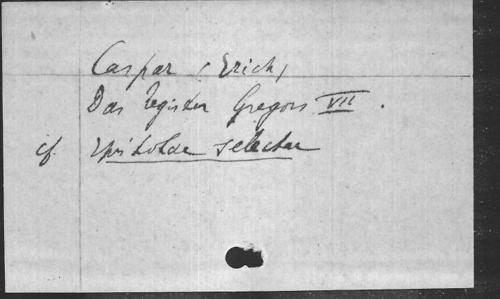 Caspar (Erich)
Das Register Gregors VII.
cf Epistolae selectae